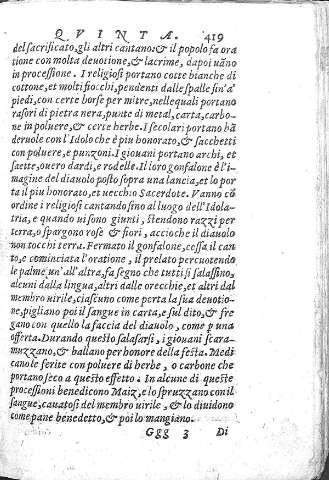 QVINTA. 419
del sacrificato, gli altri cantano: & il popolo fa ora
tione con molta deuotione, & lacrime, dapoi uãno
in processione. I religiosi portano cotte bianche di
cottone, et molti fiocchi, pendenti dalle spalle sin'a
piedi, con certe borse per mitre, nelle quali portano
rasori di pietra nera, punte di metal, carta, carbo-
ne in poluere, & certe herbe. I secolari portano bã
deruole con l'Idolo che è piu honorato, & sacchetti
con poluere, e punzoni. I giouani portano archi, et
saette, ouero dardi, e rodelle. Il loro gonfalone è l'i-
magine del diauolo posto sopra una lancia, et lo por
ta il piu honorato, et uecchio Sacerdote. Vanno cõ
ordine i religiosi cantando sino al luogo dell'Idola-
tria, e quando ui sono giunti, stendono razzi per
terra, o spargono rose & fiori, accioche il diauolo
non tocchi terra. Fermato il gonfalone, cessa il can
to, e cominciata l'oratione, il prelato percuotendo
le palme un'all'altra, fa segno che tutti si salassino,
alcuni dalla lingua, altri dalle orecchie, et altri dal
membro uirile, ciascuno come porta la sua deuotio-
ne, pigliano poi il sangue in carta, e sul dito, & fre
gano con quello la faccia del diauolo, come p una
offerta. Durando questo salasarsi, i giouani scara-
muzzano, & ballano per honore della festa. Medi
cano le ferite con poluere di herbe, o carbone che
portano seco a questo effetto. In alcune di queste
processioni benedicono Maiz, e lo spruzzano con il
sangue, cauatosi del membro uirile, & lo diuidono
come pane benedetto, & poi lo mangiano.
Ggg 3 Di